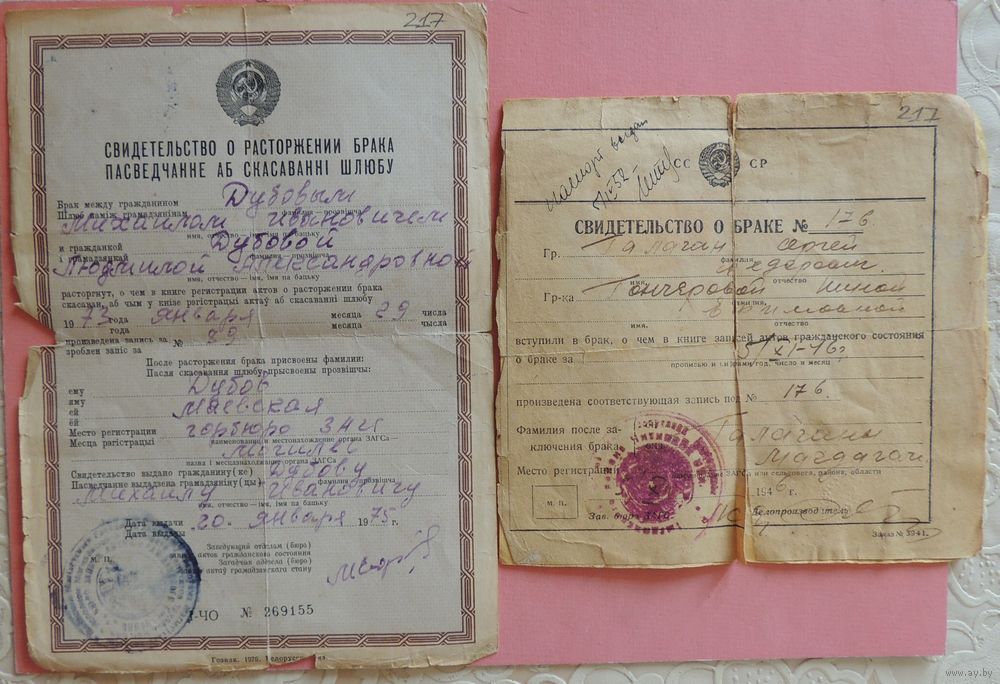 217
СВИДЕТЕЛЬСТВО О РАСТОРЖЕНИИ БРАКА
ПАСВЕДЧАННЕ АБ СКАСАВАННІ ШЛЮБУ
Брак между гражданином Дубовым
Шлюб паміж грамадзянінам
фамилия прозвішча
Михаилом Ивановичем
имя, отчество — імя, імя па бацьку
и гражданкой Дубовой
і грамадзянкай
фамилия прозвішча
Людмилой Александровной
имя, отчество — імя, імя па бацьку
расторгнут, о чем в книге регистрации актов о расторжении брака
скасаван, аб чым у кнізе рэгістрацыі актаў аб скасаванні шлюбу
1973 года января месяца 29 числа
года месяца чысла
произведена запись за № 29
зроблен запіс за
После расторжения брака присвоены фамилии:
Пасля скасавання шлюбу прысвоены прозвішчы:
ему Дубов
яму
ей Маевская
ёй
Место регистрации горбюро ЗАГС
Месца рэгістрацыі
наименование и местонахождение органа ЗАГСа—
Могилев
назва і месцазнаходжанне органа ЗАГСа
Свидетельство выдано гражданину(ке) Дубову
Пасведчанне выдадзена грамадзяніну(цы) прозвішча
Михаилу Ивановичу
имя, отчество — імя, імя па бацьку
Дата выдачи 20 января 1975 г.
Дата выдачы
М. П.
Заведующий отделом (бюро)
записи актов гражданского состояния
Загадчык аддзела (бюро)
актаў грамадзянскага стану
I-ЧО № 269155
Гознак. 1970.
217
паспорт выдан
СС СР
СВИДЕТЕЛЬСТВО О БРАКЕ № 176
Гр. Галаган Сергей
фамилия
имя, отчество
Гр-ка Гончаровой Ниной
фамилия,
Ефимовной
имя, отчество
вступили в брак, о чем в книге записей актов гражданского состояния
о браке за 5/XI-46г
прописью и цифрами год, число и месяц
произведена соответствующая запись под № 176.
Фамилия после за-
ключения брака: Галаганы
Место регистрации Магдагачи
ЗАГСа или сельсовета, района, области
1946 г.
М. П.
Зав. бюро ЗАГС
Делопроизводитель
Заказ № 5941.
www.ay.by